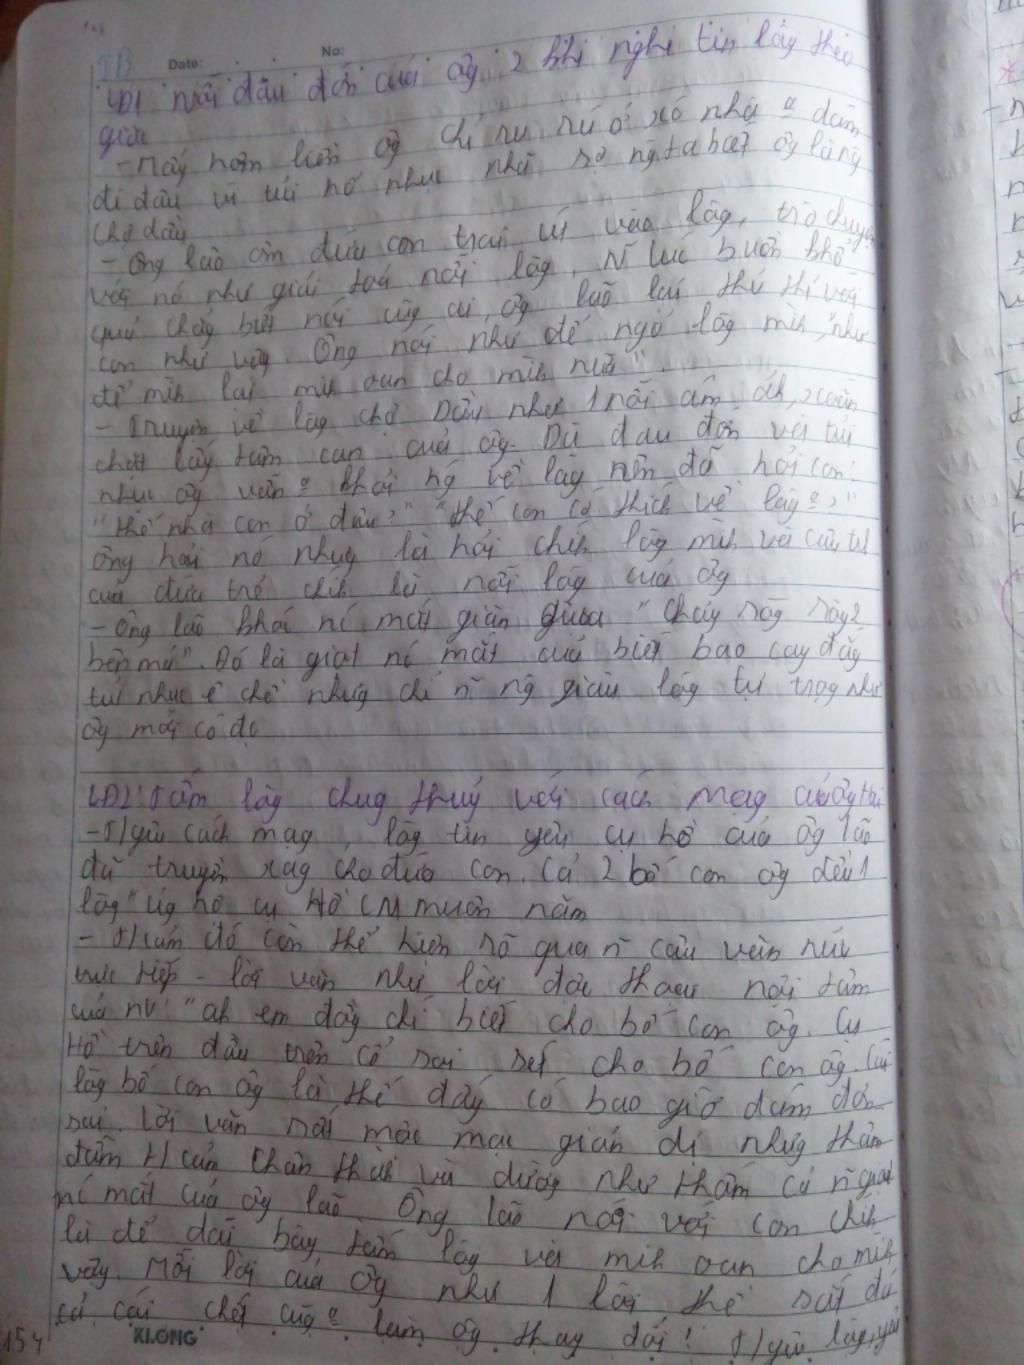 Date: No:
LĐ1 nỗi đau đớn của ôg 2 khi nghe tin làg theo
giặc
- Mấy hôm liền ôg chỉ ru rú ở xó nhà dám
đi đâu vì tủi hổ nhục nhã sợ ngta biết ôg là ng
chợ dầu
- Ông lão ôm đứa con trai út vào lòg, trò chuyện
với nó như giải toả nỗi lòg. lúc buồn khổ
quá chẳg biết nói cùg ai, ôg lão lại thủ thỉ với
con như vậy. Ông nói như để ngỏ lòg mìh, như
để mìh lại mih oan cho mìh nữa".
- Truyện về làg chợ Dầu như 1 nỗi ám ảh,
chặt lấy tâm can của ôg. Dù đau đớn và tủi
nhục ôg vẫn khôi về làg nên đã hỏi con:
"thế nhà con ở đâu?" "thế con có thích về làg?"
Ông hỏi nó nhưg là hỏi chíh lòg mìh và câu tl
của đứa trẻ chíh là nỗi lòg của ôg
- Ông lão khóc nc mắt giàn giụa "chảy ròg ròg 2
bên má". Đó là giọt nc mắt của biết bao cay đắg
tủi nhục ê chề nhưg chỉ ng giàu lòg tự trọg như
ôg mới có đc
LĐ2: Tấm lòg chug thuỷ với cách mạg của ôg Hai
- T/yêu cách mạg, lòg tin yêu cụ hồ của ôg lão
đã truyền sag cho đứa con. Cả 2 bố con ôg đều 1
lòg "ủg hộ cụ Hồ CM muôn năm
- T/cảm đó còn thể hiện rõ qua câu văn nửa
trực tiếp - lời văn như lời độc thoại nội tâm
của nv: "ah em đồg chí biết cho bố con ôg. Cụ
Hồ trên đầu trên cổ soi xét cho bố con ôg. Cái
lòg bố con ôg là thế đấy có bao giờ dám đơn
sai. Lời văn rất mộc mạc giản dị nhưg thấm
đẫm t/cảm chân thàh và dườg như thấm cả giọt
nc mắt của ôg lão. Ông lão nói với con chíh
là để dãi bày tấm lòg và mih oan cho mìh
vậy. Mỗi lời của ôg như 1 lời thề sắt đá
cả cái chết cũg làm ôg thay đổi! T/yêu làg, yêu
154 KLONG